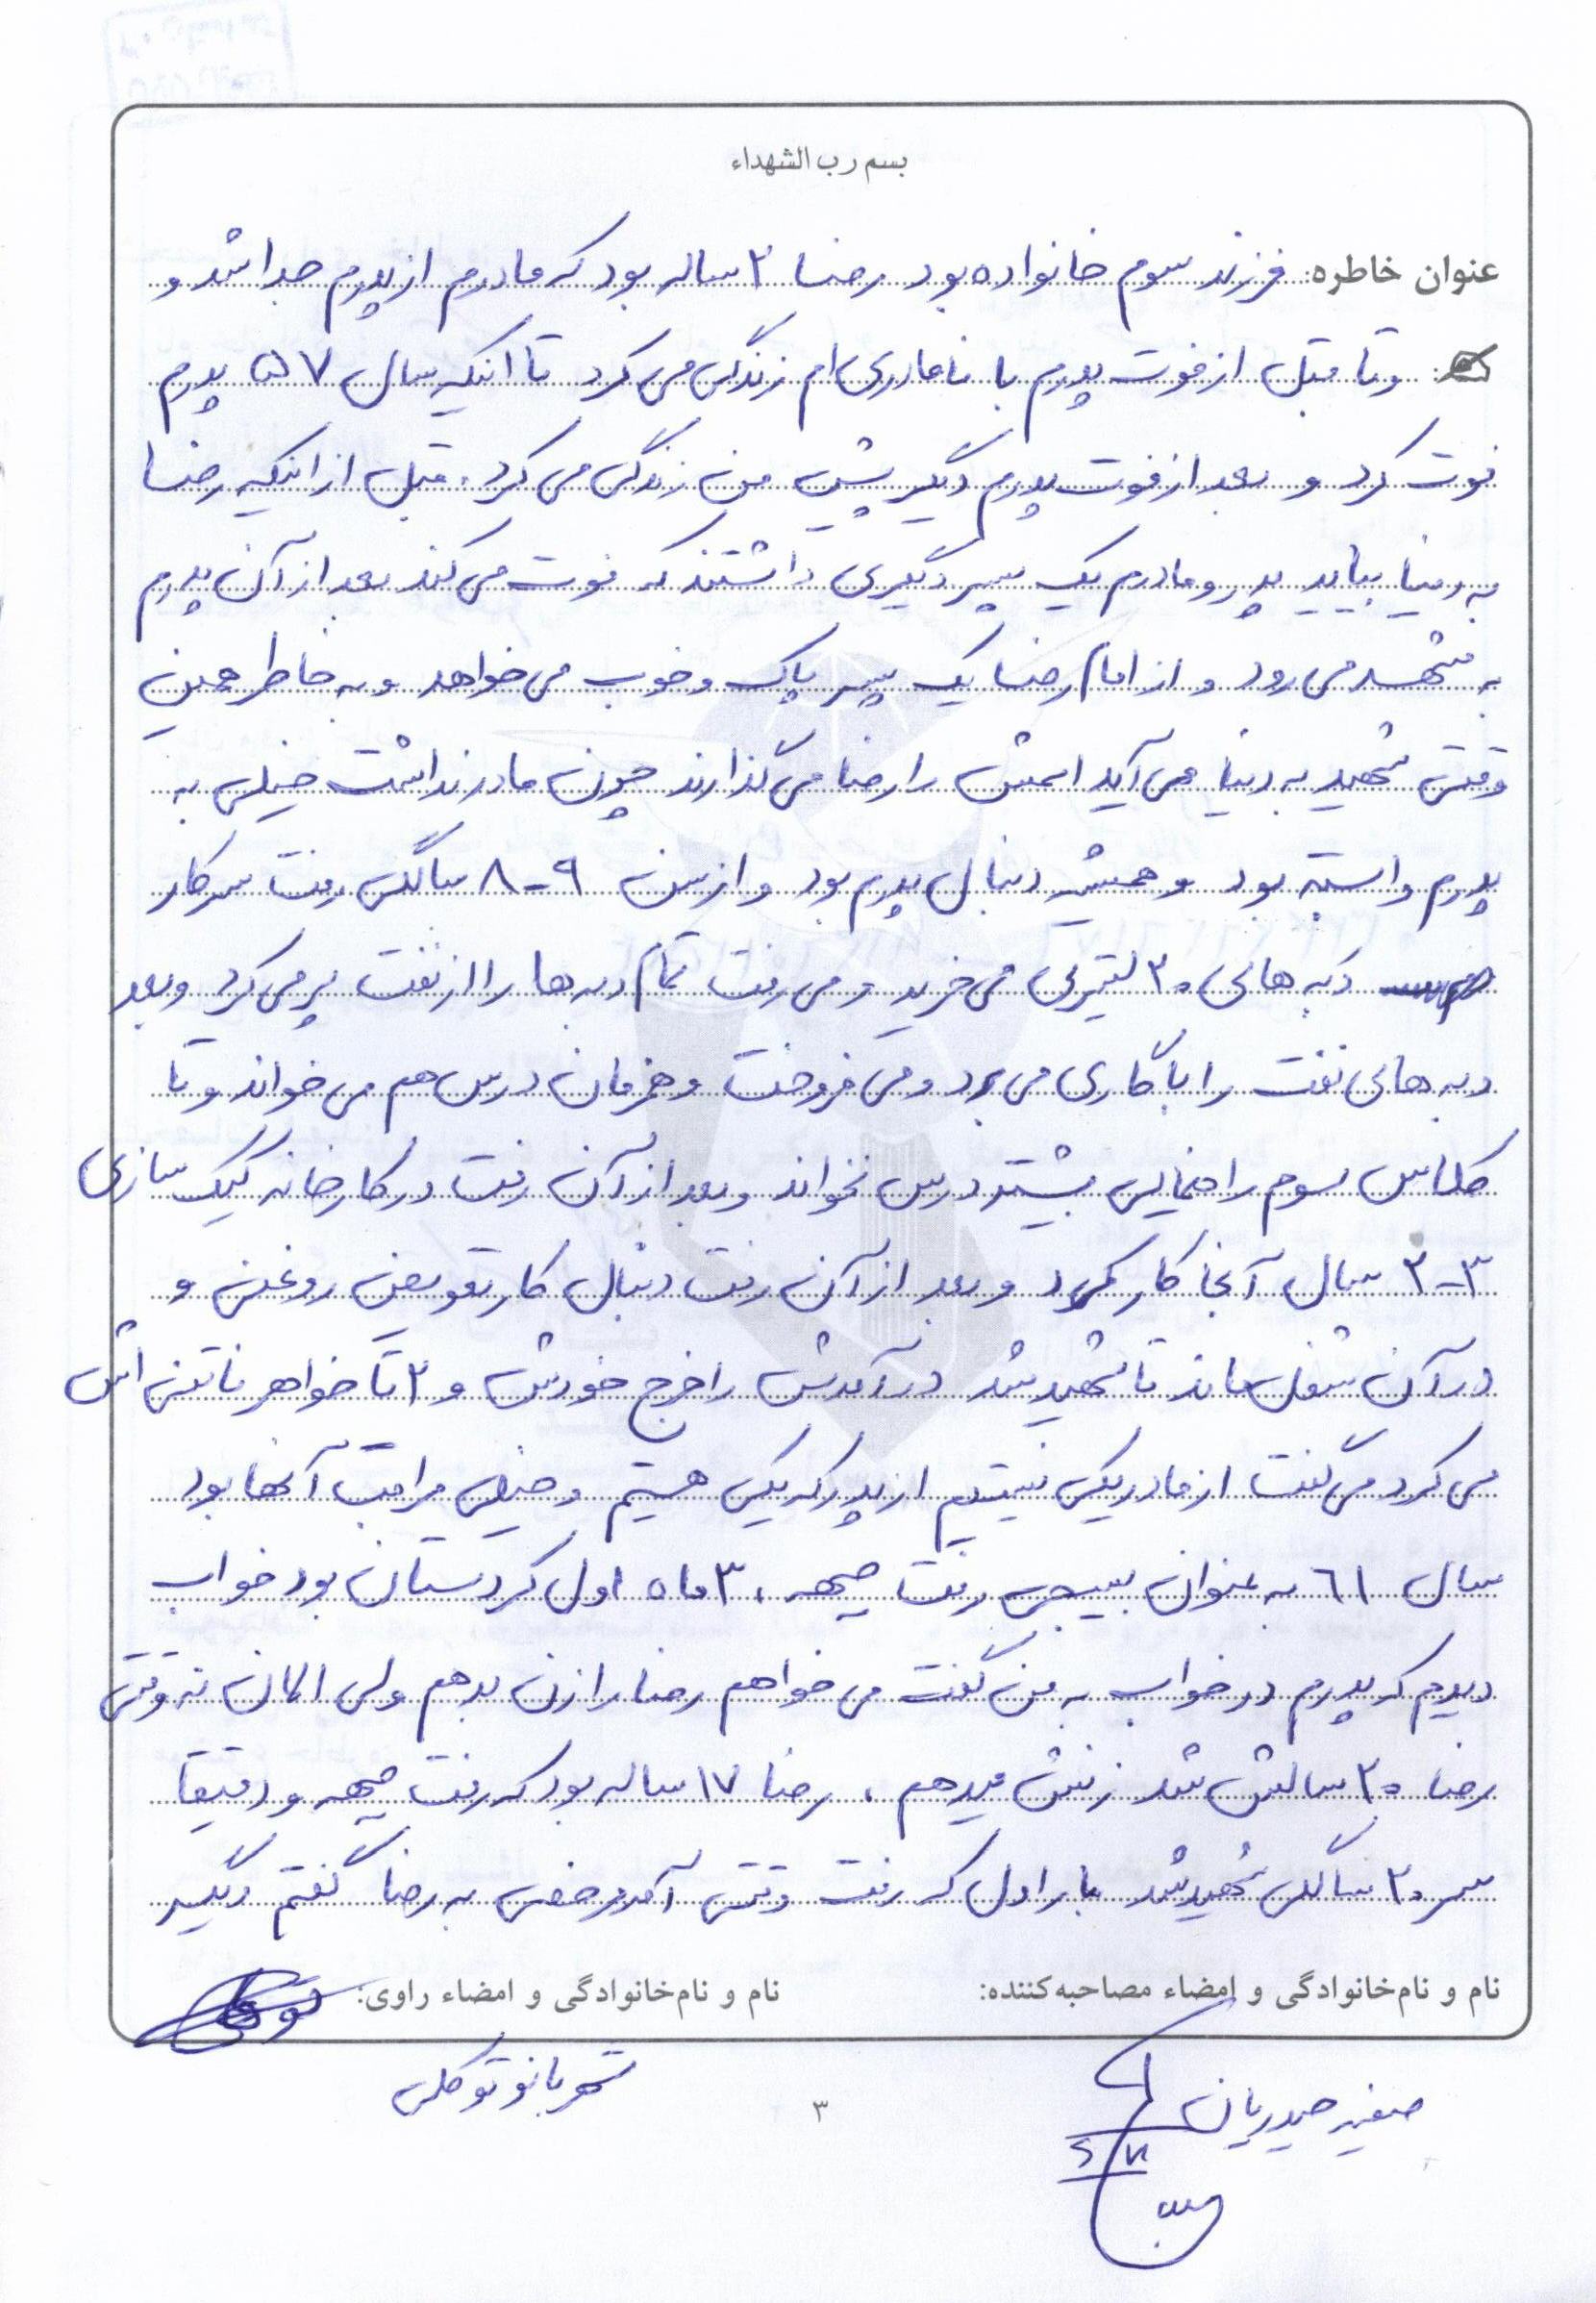 بسم رب الشهداء
عنوان خاطره: فرزند سوم خانواده بود رضا ۲ ساله بود که مادرم از پدرم جدا شد و
و تا قبل از فوت پدرم با نامادری ام زندگی می کرد تا اینکه سال ۵۷ پدرم
فوت کرد و بعد از فوت پدرم دیگر پیش من زندگی می کرد. قبل از اینکه رضا
به دنیا بیاید پدر و مادرم یک پسر دیگری داشتند که فوت می کند بعد از آن پدرم
به مشهد می رود و از امام رضا یک پسر پاک و خوب می خواهد و به خاطر همین
وقتی شهید به دنیا می آید اسمش را رضا می گذارند چون مادر نداشت خیلی به
پدرم وابسته بود و همیشه دنبال پدرم بود و از سن ۹-۸ سالگی رفت سر کار
دبه های ۲۰ لیتری می خرید و می رفت تمام دبه ها را از نفت پر می کرد و بعد
دبه های نفت را با گاری می برد و می فروخت و همزمان درس هم می خواند و تا
کلاس سوم راهنمایی بیشتر درس نخواند و بعد از آن رفت در کارخانه کیک سازی
۲-۳ سال آنجا کار کرد و بعد از آن رفت دنبال کار تعویض روغنی و
در آن شغل ماند تا شهید شد در آمدش را خرج خودش و ۲ تا خواهر ناتنی اش
می کرد می گفت از مادر یکی نیستیم از پدر که یکی هستیم و خیلی مراقب آنها بود
سال ۶۱ به عنوان بسیجی رفت جبهه، ۳ ماه اول کردستان بود خواب
دیدم که پدرم در خواب به من گفت می خواهم رضا را زن بدهم ولی الان نه وقتی
رضا ۲۰ سالش شد زنش میدهم، رضا ۱۷ ساله بود که رفت جبهه و دقیقا
سر ۲۰ سالگی شهید شد بار اول که رفت وقتی آمد مرخصی به رضا گفتم دیگر
نام و نام‌خانوادگی و امضاء مصاحبه‌کننده:
نام و نام‌خانوادگی و امضاء راوی:
صفیه حیدریان
شهربانو توکلی
۳